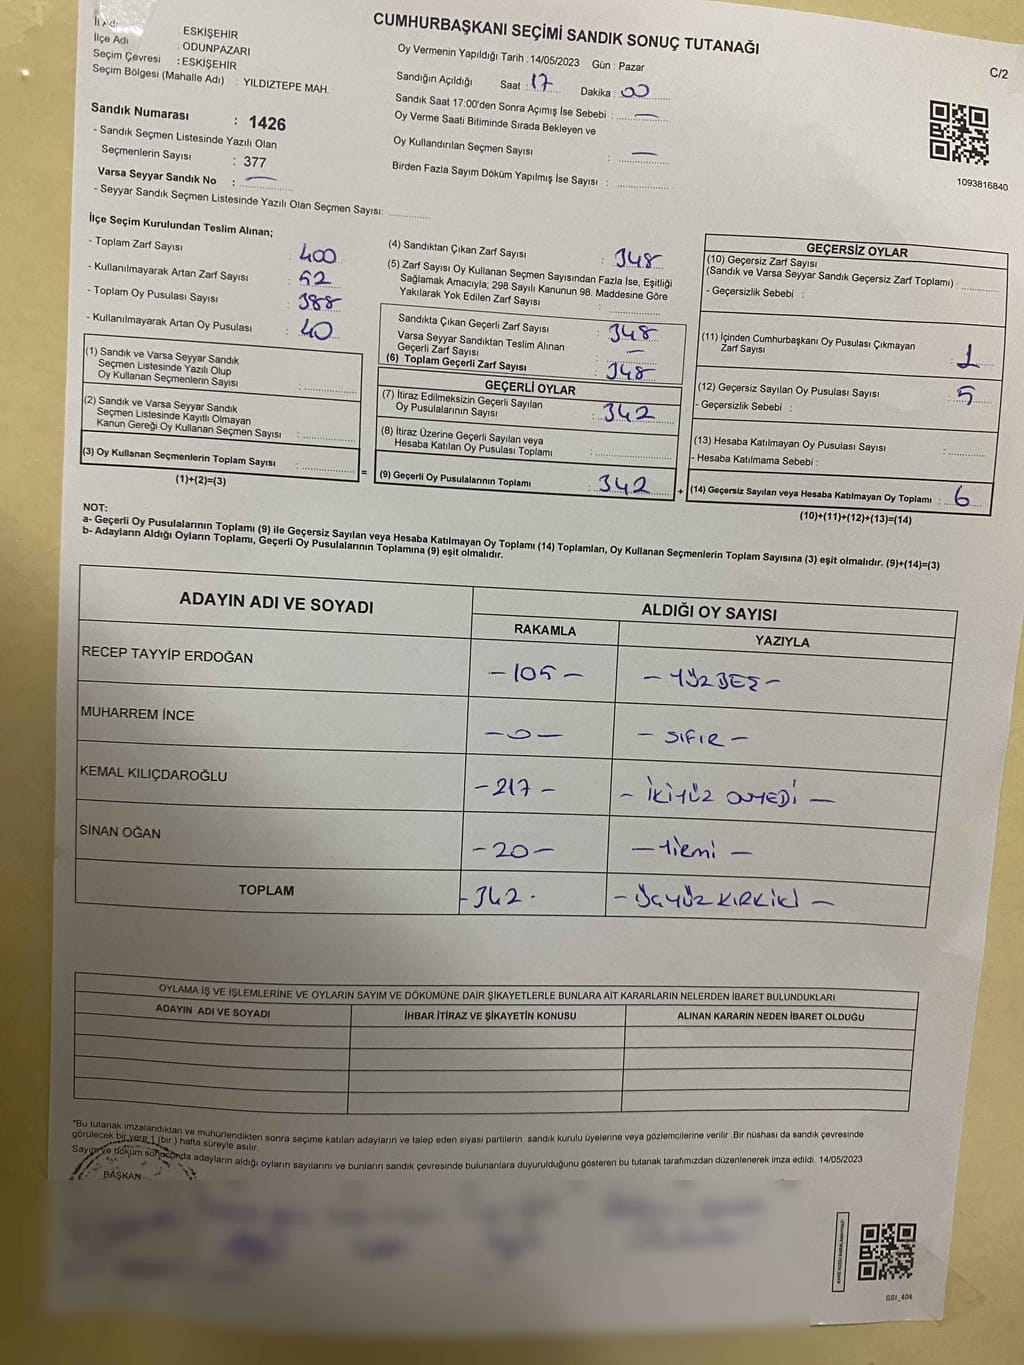 CUMHURBAŞKANI SEÇİMİ SANDIK SONUÇ TUTANAĞI
C/2
İl Adı : ESKİŞEHİR
İlçe Adı : ODUNPAZARI
Seçim Çevresi : ESKİŞEHİR
Seçim Bölgesi (Mahalle Adı) : YILDIZTEPE MAH.
Oy Vermenin Yapıldığı Tarih : 14/05/2023 Gün : Pazar
Sandığın Açıldığı Saat : 17 Dakika : 00
Sandık Saat 17:00'den Sonra Açımış İse Sebebi : —
Oy Verme Saati Bitiminde Sırada Bekleyen ve
Oy Kullandırılan Seçmen Sayısı : —
Birden Fazla Sayım Döküm Yapılmış İse Sayısı :
1093816840
Sandık Numarası : 1426
- Sandık Seçmen Listesinde Yazılı Olan
Seçmenlerin Sayısı : 377
Varsa Seyyar Sandık No : —
- Seyyar Sandık Seçmen Listesinde Yazılı Olan Seçmen Sayısı:
İlçe Seçim Kurulundan Teslim Alınan;
- Toplam Zarf Sayısı : 400
- Kullanılmayarak Artan Zarf Sayısı : 52
- Toplam Oy Pusulası Sayısı : 388
- Kullanılmayarak Artan Oy Pusulası : 40
(1) Sandık ve Varsa Seyyar Sandık
Seçmen Listesinde Yazılı Olup
Oy Kullanan Seçmenlerin Sayısı :
(2) Sandık ve Varsa Seyyar Sandık
Seçmen Listesinde Kayıtlı Olmayan
Kanun Gereği Oy Kullanan Seçmen Sayısı :
(3) Oy Kullanan Seçmenlerin Toplam Sayısı :
(1)+(2)=(3)
(4) Sandıktan Çıkan Zarf Sayısı : 348
(5) Zarf Sayısı Oy Kullanan Seçmen Sayısından Fazla İse, Eşitliği
Sağlamak Amacıyla; 298 Sayılı Kanunun 98. Maddesine Göre
Yakılarak Yok Edilen Zarf Sayısı :
Sandıkta Çıkan Geçerli Zarf Sayısı : 348
Varsa Seyyar Sandıktan Teslim Alınan
Geçerli Zarf Sayısı : —
(6) Toplam Geçerli Zarf Sayısı : 348
GEÇERLİ OYLAR
(7) İtiraz Edilmeksizin Geçerli Sayılan
Oy Pusulalarının Sayısı : 342
(8) İtiraz Üzerine Geçerli Sayılan veya
Hesaba Katılan Oy Pusulası Toplamı :
= (9) Geçerli Oy Pusulalarının Toplamı : 342 +
GEÇERSİZ OYLAR
(10) Geçersiz Zarf Sayısı
(Sandık ve Varsa Seyyar Sandık Geçersiz Zarf Toplamı) :
- Geçersizlik Sebebi :
(11) İçinden Cumhurbaşkanı Oy Pusulası Çıkmayan
Zarf Sayısı : 1
(12) Geçersiz Sayılan Oy Pusulası Sayısı : 5
- Geçersizlik Sebebi :
(13) Hesaba Katılmayan Oy Pusulası Sayısı :
- Hesaba Katılmama Sebebi :
(14) Geçersiz Sayılan veya Hesaba Katılmayan Oy Toplamı : 6
(10)+(11)+(12)+(13)=(14)
NOT:
a- Geçerli Oy Pusulalarının Toplamı (9) ile Geçersiz Sayılan veya Hesaba Katılmayan Oy Toplamı (14) Toplamları, Oy Kullanan Seçmenlerin Toplam Sayısına (3) eşit olmalıdır. (9)+(14)=(3)
b- Adayların Aldığı Oyların Toplamı, Geçerli Oy Pusulalarının Toplamına (9) eşit olmalıdır.
ADAYIN ADI VE SOYADI ALDIĞI OY SAYISI
RAKAMLA YAZIYLA
RECEP TAYYİP ERDOĞAN - 105 - - YÜZBEŞ -
MUHARREM İNCE - 0 - - SIFIR -
KEMAL KILIÇDAROĞLU - 217 - - İKİYÜZ ONYEDİ -
SİNAN OĞAN - 20 - - Yirmi -
TOPLAM - 342 - - ÜÇYÜZ KIRKİKİ -
OYLAMA İŞ VE İŞLEMLERİNE VE OYLARIN SAYIM VE DÖKÜMÜNE DAİR ŞİKAYETLERLE BUNLARA AİT KARARLARIN NELERDEN İBARET BULUNDUKLARI
ADAYIN ADI VE SOYADI İHBAR İTİRAZ VE ŞİKAYETİN KONUSU ALINAN KARARIN NEDEN İBARET OLDUĞU
*Bu tutanak imzalandıktan ve mühürlendikten sonra seçime katılan adayların ve talep eden siyasi partilerin sandık kurulu üyelerine veya gözlemcilerine verilir .Bir nüshası da sandık çevresinde
görülecek bir yere 1 (bir ) hafta süreyle asılır.
Sayım ve döküm sonucunda adayların aldığı oyların sayılarını ve bunların sandık çevresinde bulunanlara duyurulduğunu gösteren bu tutanak tarafımızdan düzenlenerek imza edildi. 14/05/2023
BAŞKAN
SSI_404